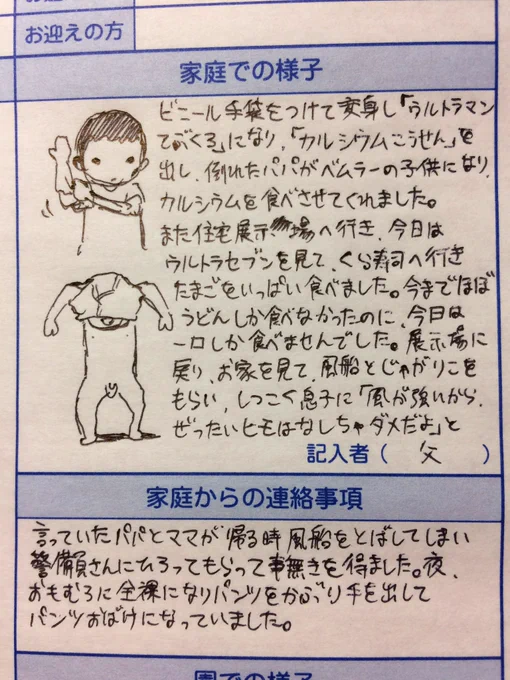 お迎えの方
家庭での様子
ビニール手袋をつけて変身し「ウルトラマン
てぶくろ」になり、「カルシウムこうせん」を
出し、倒れたパパがベムラーの子供になり、
カルシウムを食べさせてくれました。
また住宅展示場へ行き、今日は
ウルトラセブンを見て、くら寿司へ行き
たまごをいっぱい食べました。今までほぼ
うどんしか食べなかったのに、今日は
一口しか食べませんでした。展示場に
戻り、お家を見て、風船とじゃがりこを
もらい、しつこく息子に「風が強いから、
ぜったいヒモはなしちゃダメだよ」と
記入者（ 父 ）
家庭からの連絡事項
言っていたパパとママが帰る時風船をとばしてしまい
警備員さんにひろってもらって事無きを得ました。夜、
おもむろに全裸になりパンツをかぶり手を出して
パンツおばけになっていました。
園での様子